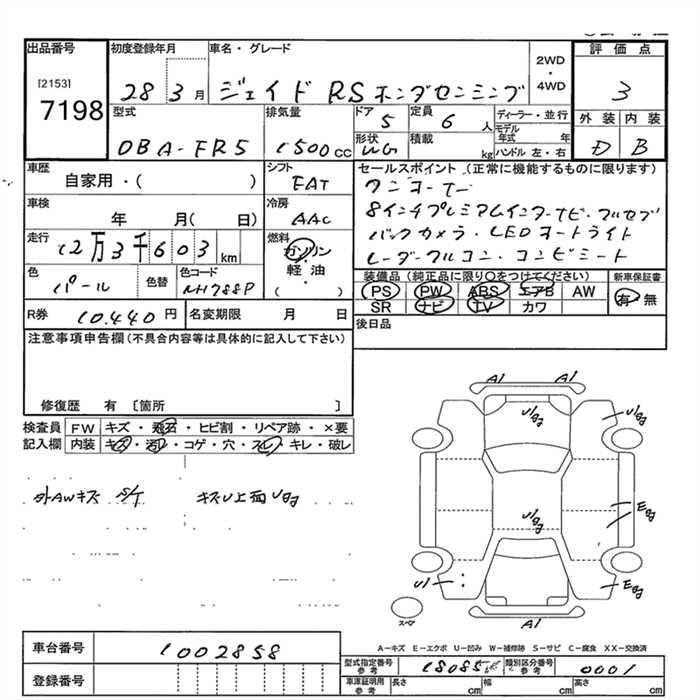 出品番号 初度登録年月 車名・グレード 2WD・4WD 評価点
[2153] 7198 28 3月 ジェイド RS ホンダセンシング 3
型式 排気量 ドア 5 定員 6人 ディーラー・並行 外装 内装
DBA-FR5 1500cc 形状 WG 積載 kg モデル年式 年 ハンドル 左・右 D B
車歴 自家用・( ) シフト FAT セールスポイント(正常に機能するものに限ります)
ワンオーナー
車検 年 月( 日) 冷房 AAC 8インチプレミアムインターナビ・フルセグ
バックカメラ・LEDヘッドライト
走行 12万3千603km 燃料 ガソリン・軽油・( ) レーダークルコン・コンビシート
色 パール 色替 色コード NH788P 装備品(純正品に限り○をつけてください) 新車保証書
PS PW ABS エアB AW 有・無
SR ナビ TV カワ
R券 10,440円 名変期限 月 日 後日品
注意事項申告欄(不具合内容等は具体的に記入して下さい)
修復歴 有 [箇所 ]
検査員記入欄 FW キズ・飛石・ヒビ割・リペア跡・×要
内装 キズ・汚レ・コゲ・穴・スレ・キレ・破レ
外AWキズ S/T キズU上面Uあg
A1 A1
U1
A1
スペア
A-キズ E-エクボ U-凹み W-補修跡 S-サビ C-腐食 XX-交換済
車台番号 1002858
型式指定番号参考 18085 類別区分番号参考 0001
登録番号 車庫証明用参考 長さ cm 幅 cm 高さ cm